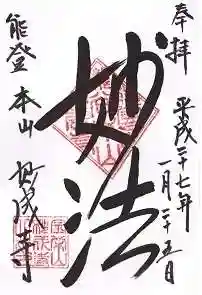 奉拝
平成二十七年
一月二十五日
妙法
能登 本山
妙成寺